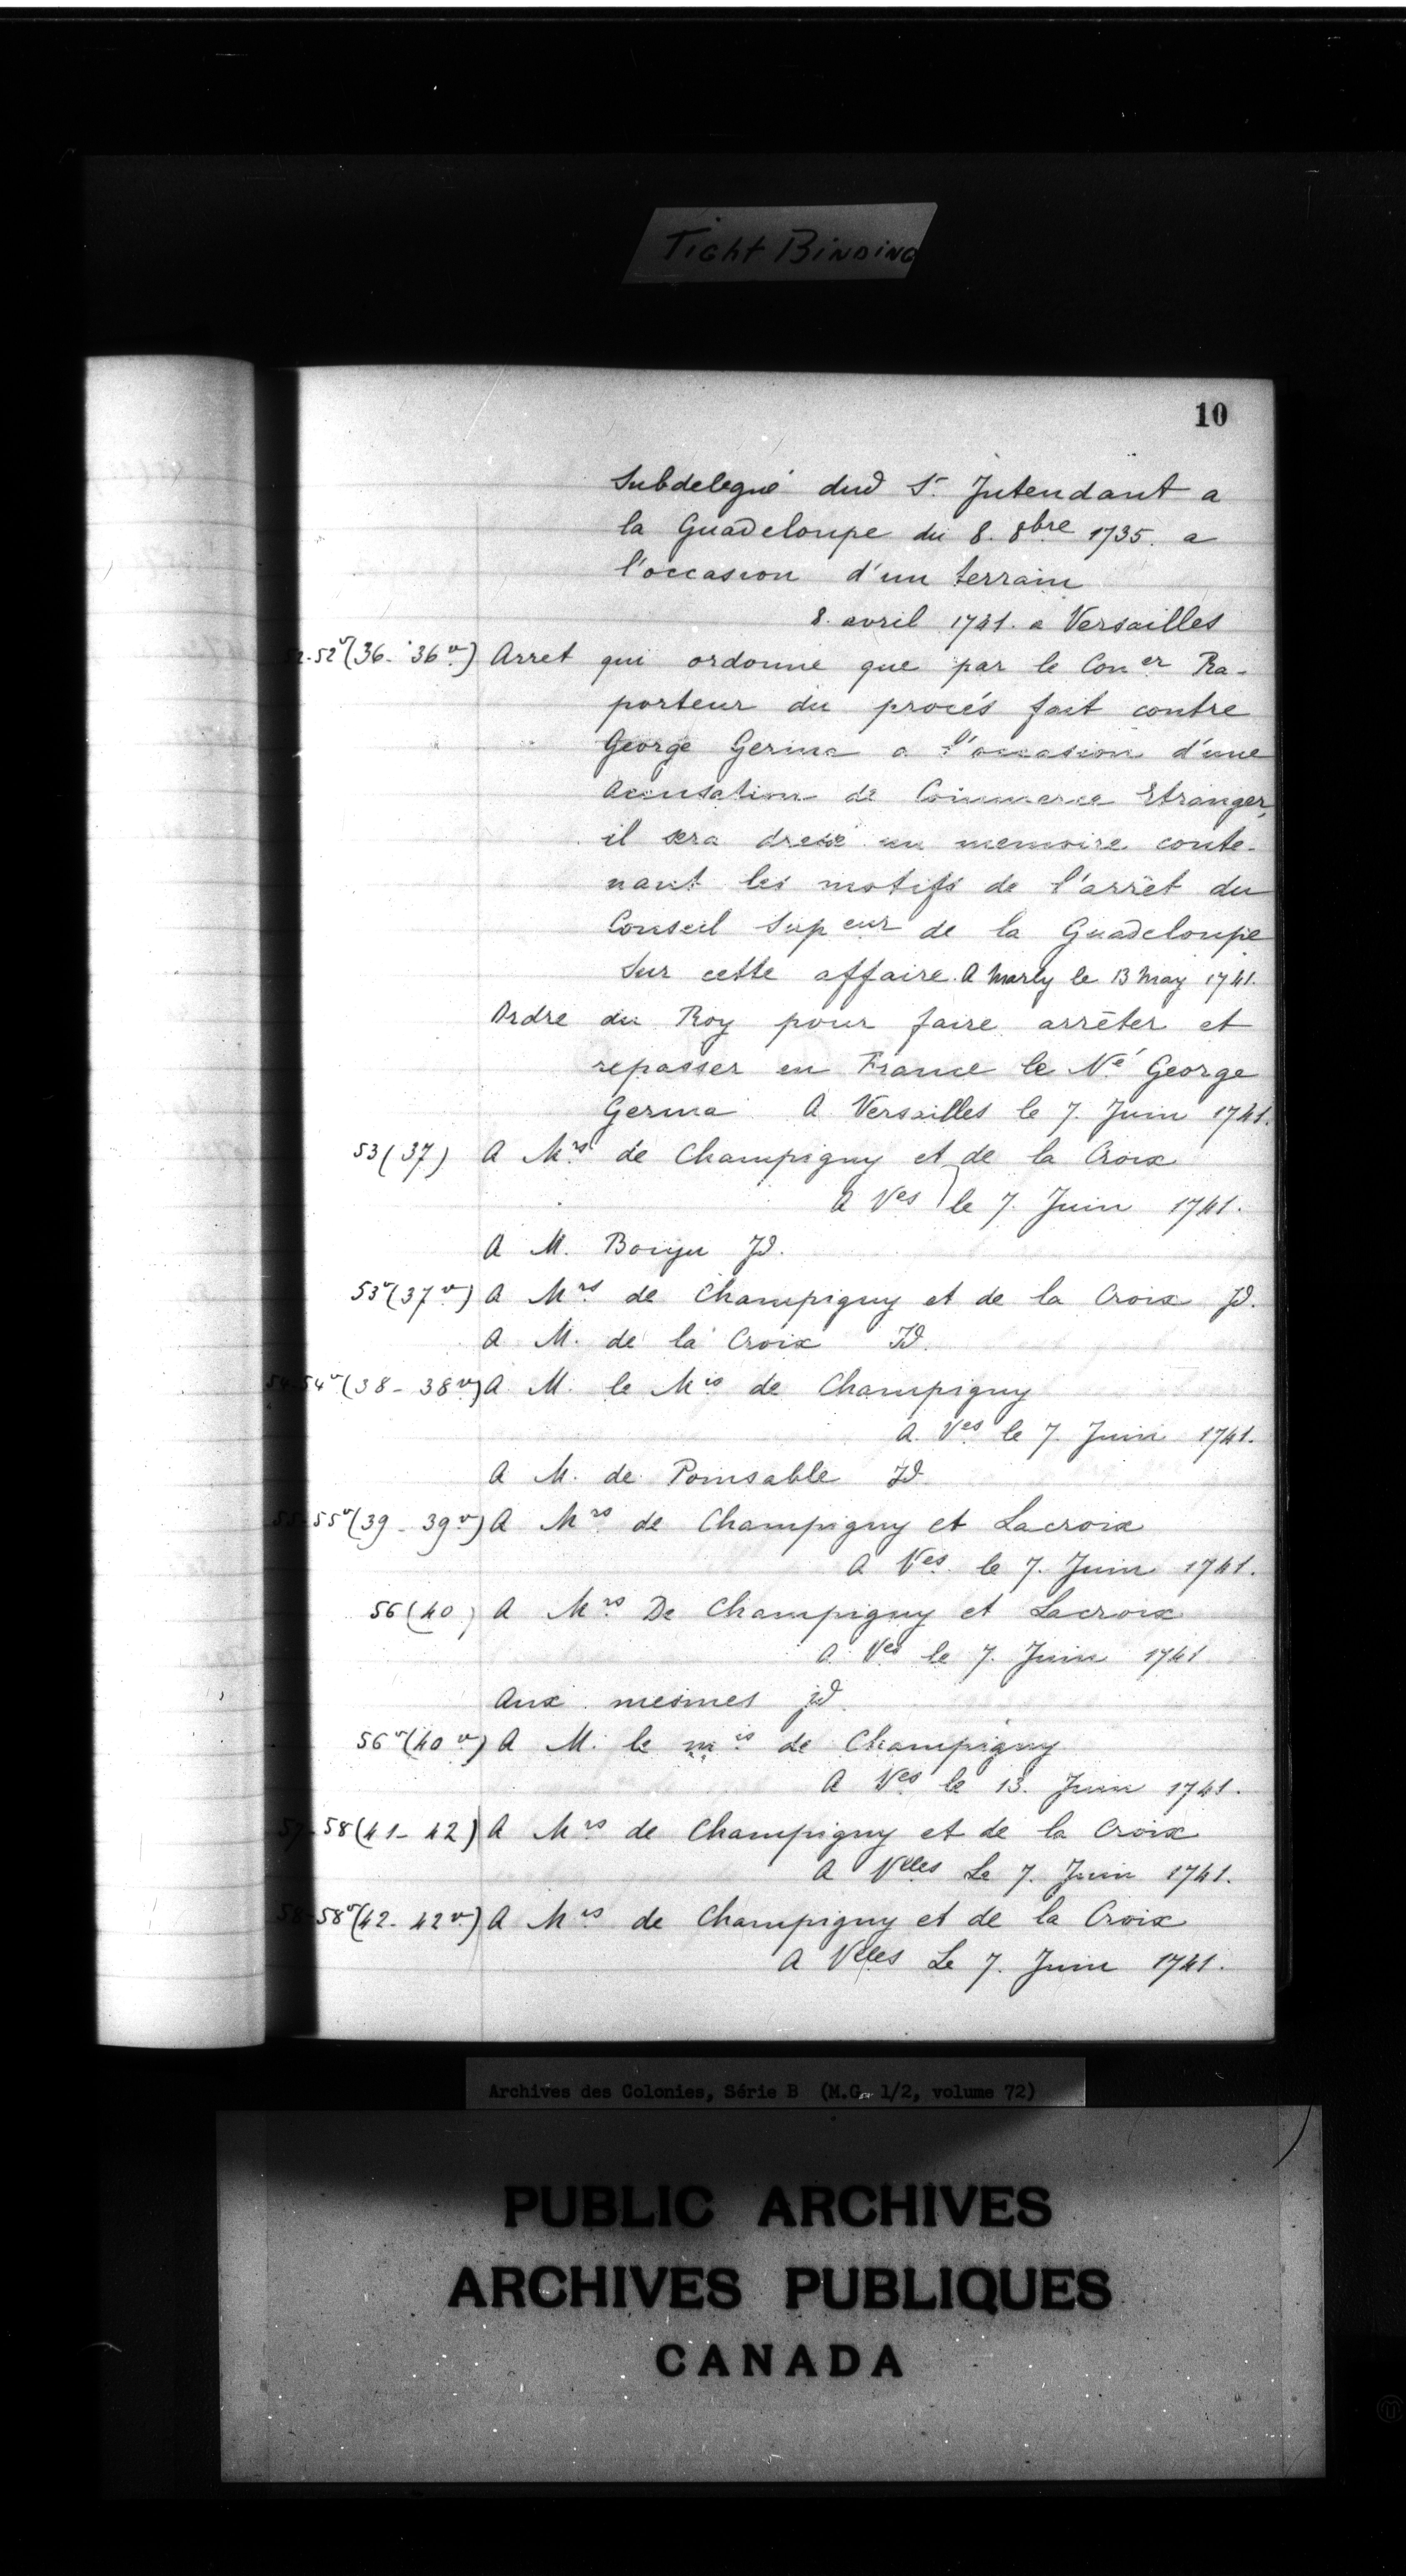 Tight Binding
10
Subdelegué dud Sr. Intendant a
la Guadeloupe du 8. 8bre 1735. a
l'occasion d'un terrain
8. avril 1741. a Versailles
52-52v (36-36v) Arret qui ordonne que par le Coner Ra-
porteur du procés fait contre
George Germa a l'occasion d'une
accusation de Commerce Etranger,
il sera dressé un memoire conte-
nant les motifs de l'arrêt du
Conseil Supeur de la Guadeloupe
sur cette affaire. A Marly le 13 May 1741.
Ordre du Roy pour faire arrêter et
repasser en France le Né George
Germa A Versailles le 7. Juin 1741.
53 (37) A Mrs de Champigny et de la Croix
A Ves le 7. Juin 1741.
A M. Bouyu Id.
53v (37v) A Mrs de Champigny et de la Croix Id.
A M. de la Croix Id.
54-54v (38-38v) A M. le Mis de Champigny
A Ves le 7. Juin 1741.
A M. de Poinsable Id.
55-55v (39-39v) A Mrs de Champigny et Lacroix
A Ves le 7. Juin 1741.
56 (40) A Mrs De Champigny et Lacroix
A Ves le 7. Juin 1741
Aux mesmes id.
56v (40v) A M. le mis de Champigny
A Ves le 13. Juin 1741.
57-58 (41-42) A Mrs de Champigny et de la Croix
A Vlles Le 7. Juin 1741.
58-58v (42-42v) A Mrs de Champigny et de la Croix
A Vlles Le 7. Juin 1741.
Archives des Colonies, Série B (M.G. 1/2, volume 72)
PUBLIC ARCHIVES
ARCHIVES PUBLIQUES
CANADA